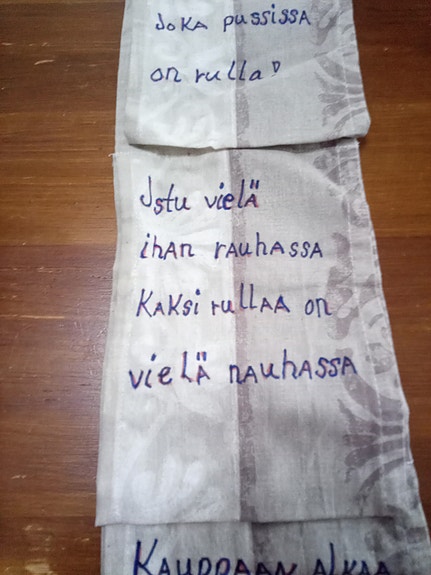 JOKA pussissA
on rulla!
Istu vielä
ihAn RAuhAssA
KAKsi rullAA on
vielÄ nAuhAssA
KAUPPAAN ALKAA